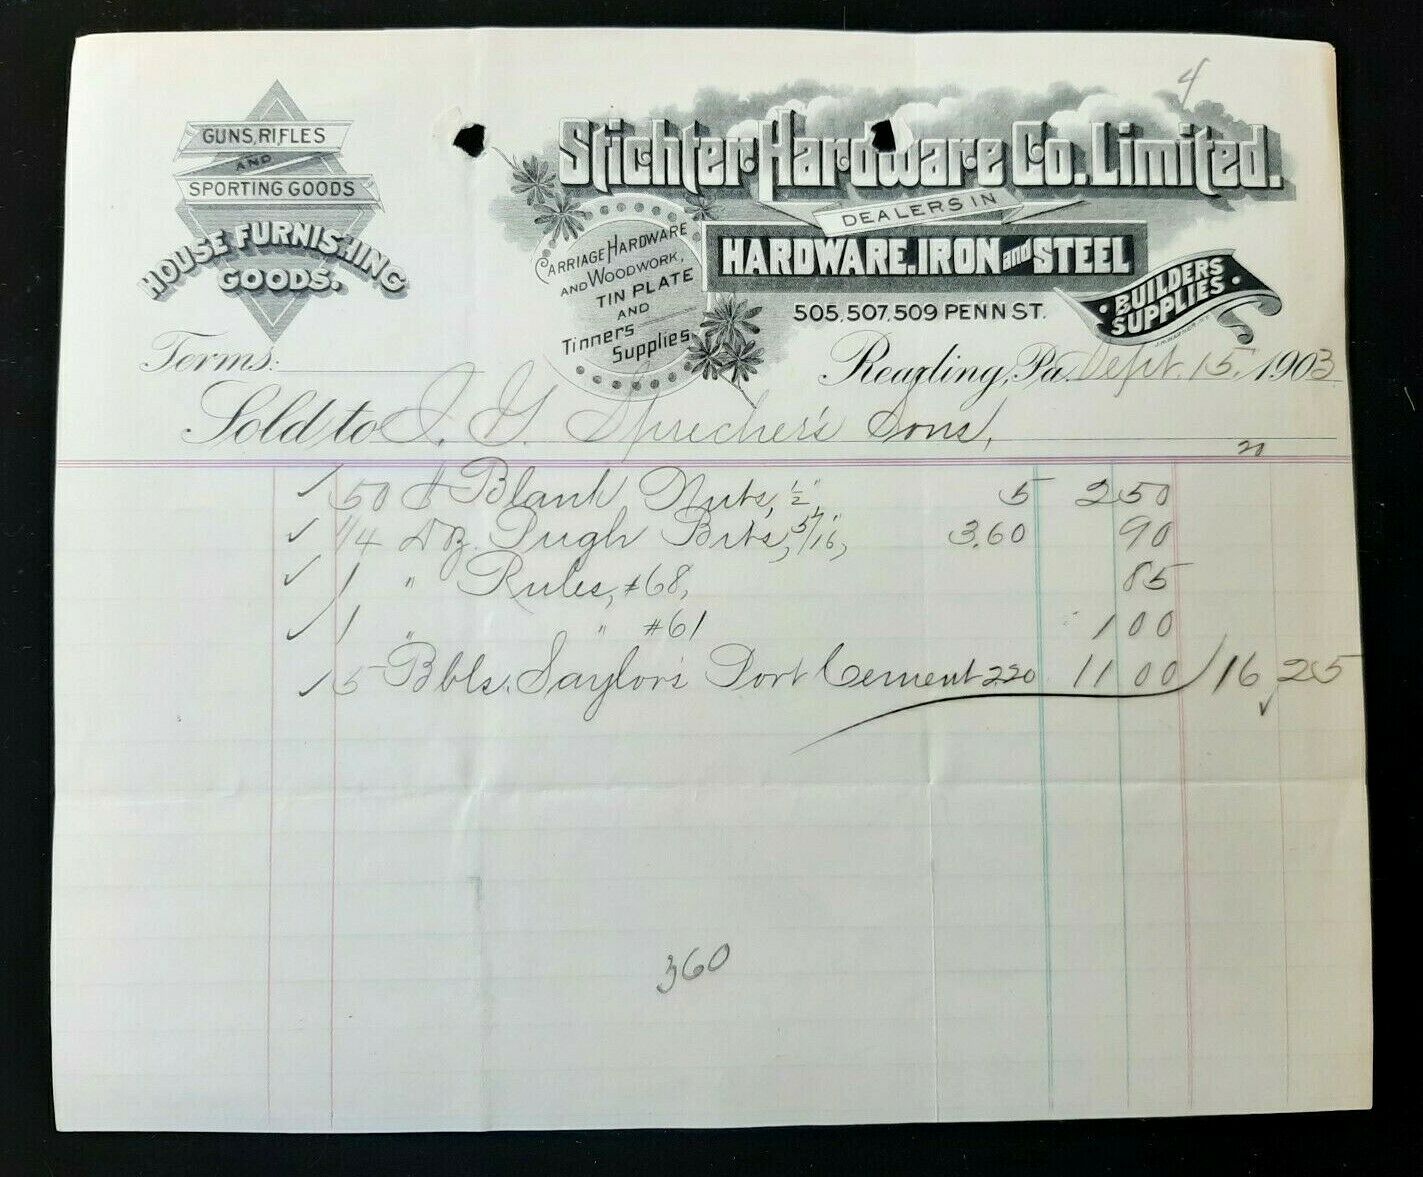 4
GUNS, RIFLES
AND
SPORTING GOODS
HOUSE FURNISHING
GOODS.
Stichter Hardware Co. Limited.
DEALERS IN
HARDWARE, IRON and STEEL
CARRIAGE HARDWARE
AND WOODWORK,
TIN PLATE
AND
Tinners
Supplies
505, 507, 509 PENN ST.
BUILDERS
SUPPLIES
Terms:
Reading, Pa. Sept. 15, 1903
Sold to J. G. Sprecher's Sons,
20
✓ 50 # Blank Nuts, 1/2" 5 2 50
✓ 1/4 Dz. Pugh Bits, 5/16", 3.60 90
✓ 1 " Rules, #68, 85
✓ 1 " " #61 1 00
✓ 5 Bbls. Saylor's Port Cement 2.20 11 00 / 16,25
✓
360